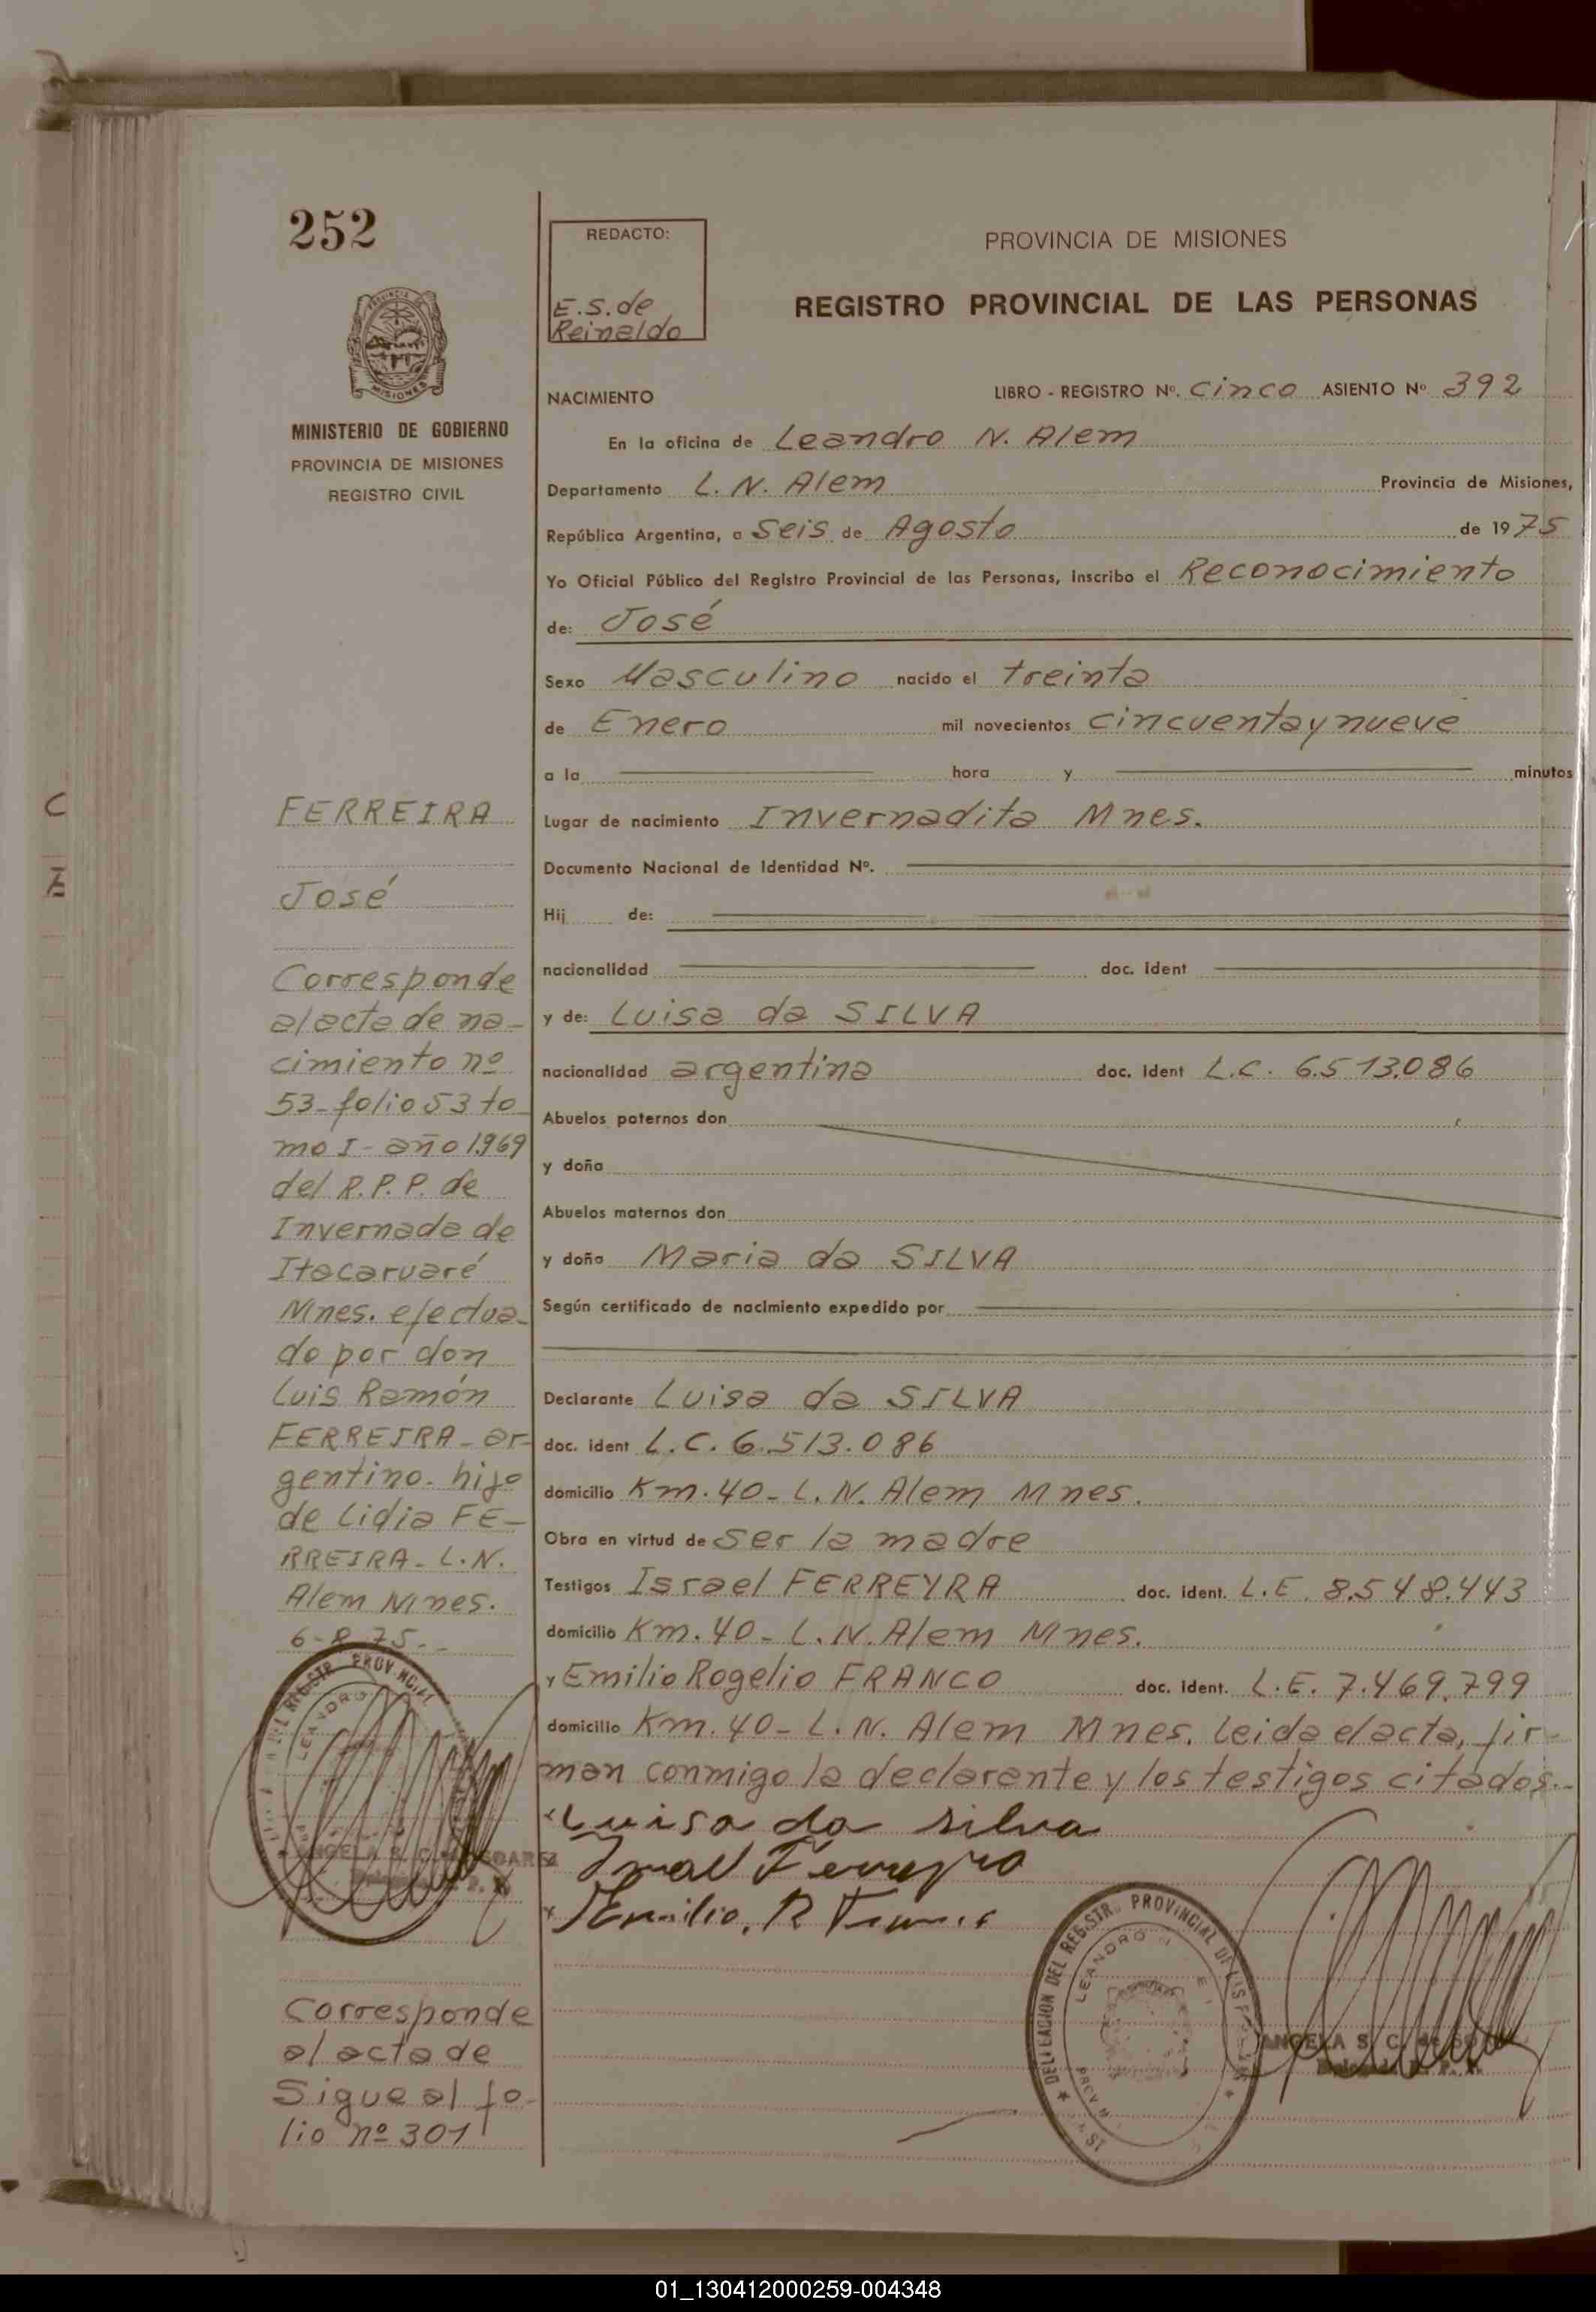 252
MINISTERIO DE GOBIERNO
PROVINCIA DE MISIONES
REGISTRO CIVIL
FERREIRA
José
Corresponde
al acta de na-
cimiento nº
53-folio 53 to
mo I- año 1969
del R.P.P. de
Invernada de
Itacaruaré
Mnes. efectua-
do por don
Luis Ramón
FERREIRA-ar-
gentino-hijo
de Lidia FE-
RREIRA-L.N.
Alem Mnes.
6-8-75--
Corresponde
al acta de
Sigue al fo-
lio nº 301
REDACTO:
E.S. de
Reinaldo
PROVINCIA DE MISIONES
REGISTRO PROVINCIAL DE LAS PERSONAS
NACIMIENTO LIBRO - REGISTRO Nº. cinco ASIENTO Nº 392
En la oficina de Leandro N. Alem
Departamento L. N. Alem Provincia de Misiones,
República Argentina, a Seis de Agosto de 1975
Yo Oficial Público del Registro Provincial de las Personas, inscribo el Reconocimiento
de: José
Sexo Masculino nacido el treinta
de Enero mil novecientos cincuenta y nueve
a la hora y minutos
Lugar de nacimiento Invernadita Mnes.
Documento Nacional de Identidad Nº.
Hij de:
nacionalidad doc. ident
y de: Luisa da SILVA
nacionalidad argentina doc. ident L.C. 6.513.086
Abuelos paternos don
y doña
Abuelos maternos don
y doña Maria da SILVA
Según certificado de nacimiento expedido por
Declarante Luisa da SILVA
doc. ident L.C. 6.513.086
domicilio Km. 40-L.N. Alem Mnes.
Obra en virtud de ser la madre
Testigos Israel FERREYRA doc. ident. L.E. 8.548.443
domicilio Km. 40-L.N. Alem Mnes.
y Emilio Rogelio FRANCO doc. ident. L.E. 7.469.799
domicilio Km. 40-L.N. Alem Mnes. leida el acta, fir-
man conmigo la declarante y los testigos citados.-
Luisa da silva
Israel Ferreyra
Emilio. R Franco
DELEGACION DEL REGISTR. PROVINCIAL DE LAS
LEANDRO N
ANGELA S. C. de
01_130412000259-004348